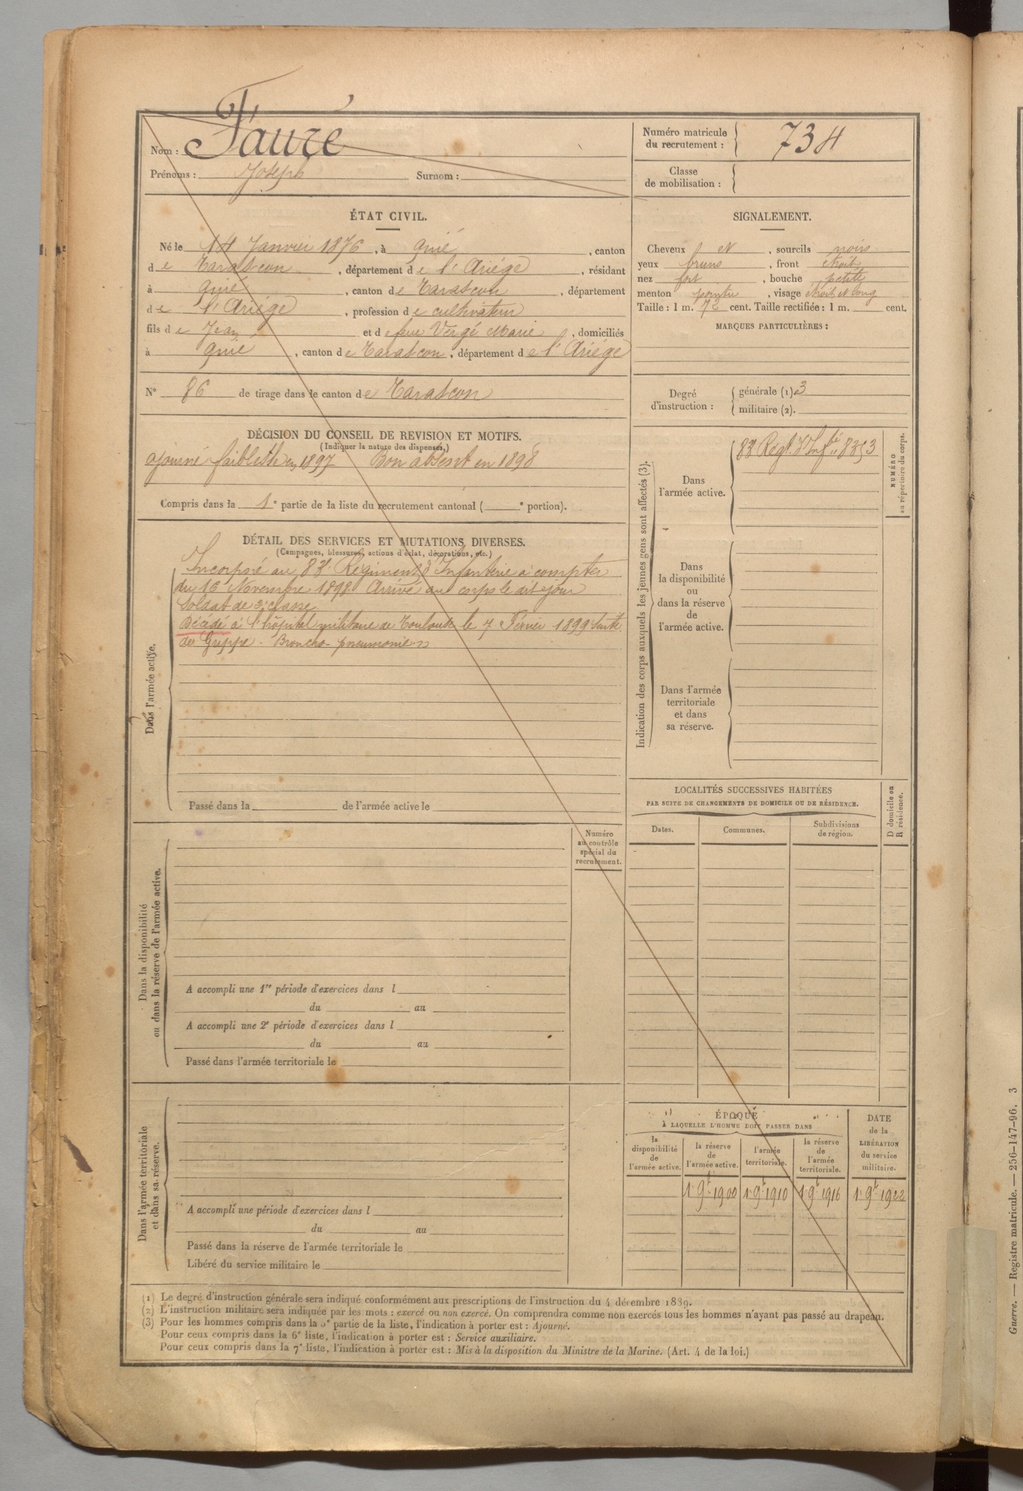 Nom : Faure
Prénoms : Joseph Surnom :
Numéro matricule du recrutement : 734
Classe de mobilisation :
ÉTAT CIVIL.
Né le 14 Janvier 1876, à Quié, canton
de Tarascon, département de l'Ariège, résidant
à Quié, canton de Tarascon, département
de l'Ariège, profession de cultivateur
fils de Jean et de feue Vergé Marie, domiciliés
à Quié, canton de Tarascon, département de l'Ariège
N° 86 de tirage dans le canton de Tarascon
SIGNALEMENT.
Cheveux et, sourcils noirs
yeux bruns, front étroit
nez fort, bouche petite
menton pointu, visage étroit et long
Taille : 1 m. 72 cent. Taille rectifiée : 1 m. cent.
MARQUES PARTICULIÈRES :
Degré d'instruction : générale (1) 3
militaire (2).
DÉCISION DU CONSEIL DE REVISION ET MOTIFS.
(Indiquer la nature des dispenses.)
ajourné faiblesse en 1897 Bon absent en 1898
Compris dans la 1e partie de la liste du recrutement cantonal ( e portion).
DÉTAIL DES SERVICES ET MUTATIONS DIVERSES.
(Campagnes, blessures, actions d'éclat, décorations, etc.)
Incorporé au 83e Régiment d'Infanterie à compter
du 16 Novembre 1898 Arrivé au corps le dit jour
Soldat de 2e classe
Décédé à l'hôpital militaire de Toulouse le 7 Février 1899 Suite
de Grippe - Broncho pneumonie
Dans l'armée active.
Passé dans la de l'armée active le
Indication des corps auxquels les jeunes gens sont affectés (3).
Dans l'armée active.
83e Régt d'Infie 8353
NUMÉRO au répertoire du corps.
Dans la disponibilité ou dans la réserve de l'armée active.
Dans l'armée territoriale et dans sa réserve.
LOCALITÉS SUCCESSIVES HABITÉES
PAR SUITE DE CHANGEMENTS DE DOMICILE OU DE RÉSIDENCE.
Dates. Communes. Subdivisions de région.
D domicile ou R résidence.
Numéro au contrôle spécial du recrutement.
Dans la disponibilité ou dans la réserve de l'armée active.
A accompli une 1re période d'exercices dans l
du au
A accompli une 2e période d'exercices dans l
du au
Passé dans l'armée territoriale le
Dans l'armée territoriale et dans sa réserve.
A accompli une période d'exercices dans l
du au
Passé dans la réserve de l'armée territoriale le
Libéré du service militaire le
ÉPOQUE
À LAQUELLE L'HOMME DOIT PASSER DANS
la disponibilité de l'armée active.
la réserve de l'armée active.
l'armée territoriale.
la réserve de l'armée territoriale.
DATE de la LIBÉRATION du service militaire.
1 9e 1900 1 9e 1910 1 9e 1916 1 9e 1922
(1) Le degré d'instruction générale sera indiqué conformément aux prescriptions de l'instruction du 4 décembre 1889.
(2) L'instruction militaire sera indiquée par les mots : exercé ou non exercé. On comprendra comme non exercés tous les hommes n'ayant pas passé au drapeau.
(3) Pour les hommes compris dans la 5e partie de la liste, l'indication à porter est : Ajourné.
Pour ceux compris dans la 6e liste, l'indication à porter est : Service auxiliaire.
Pour ceux compris dans la 7e liste, l'indication à porter est : Mis à la disposition du Ministre de la Marine. (Art. 4 de la loi.)
Guerre. — Registre matricule. — 256-147-96. 3